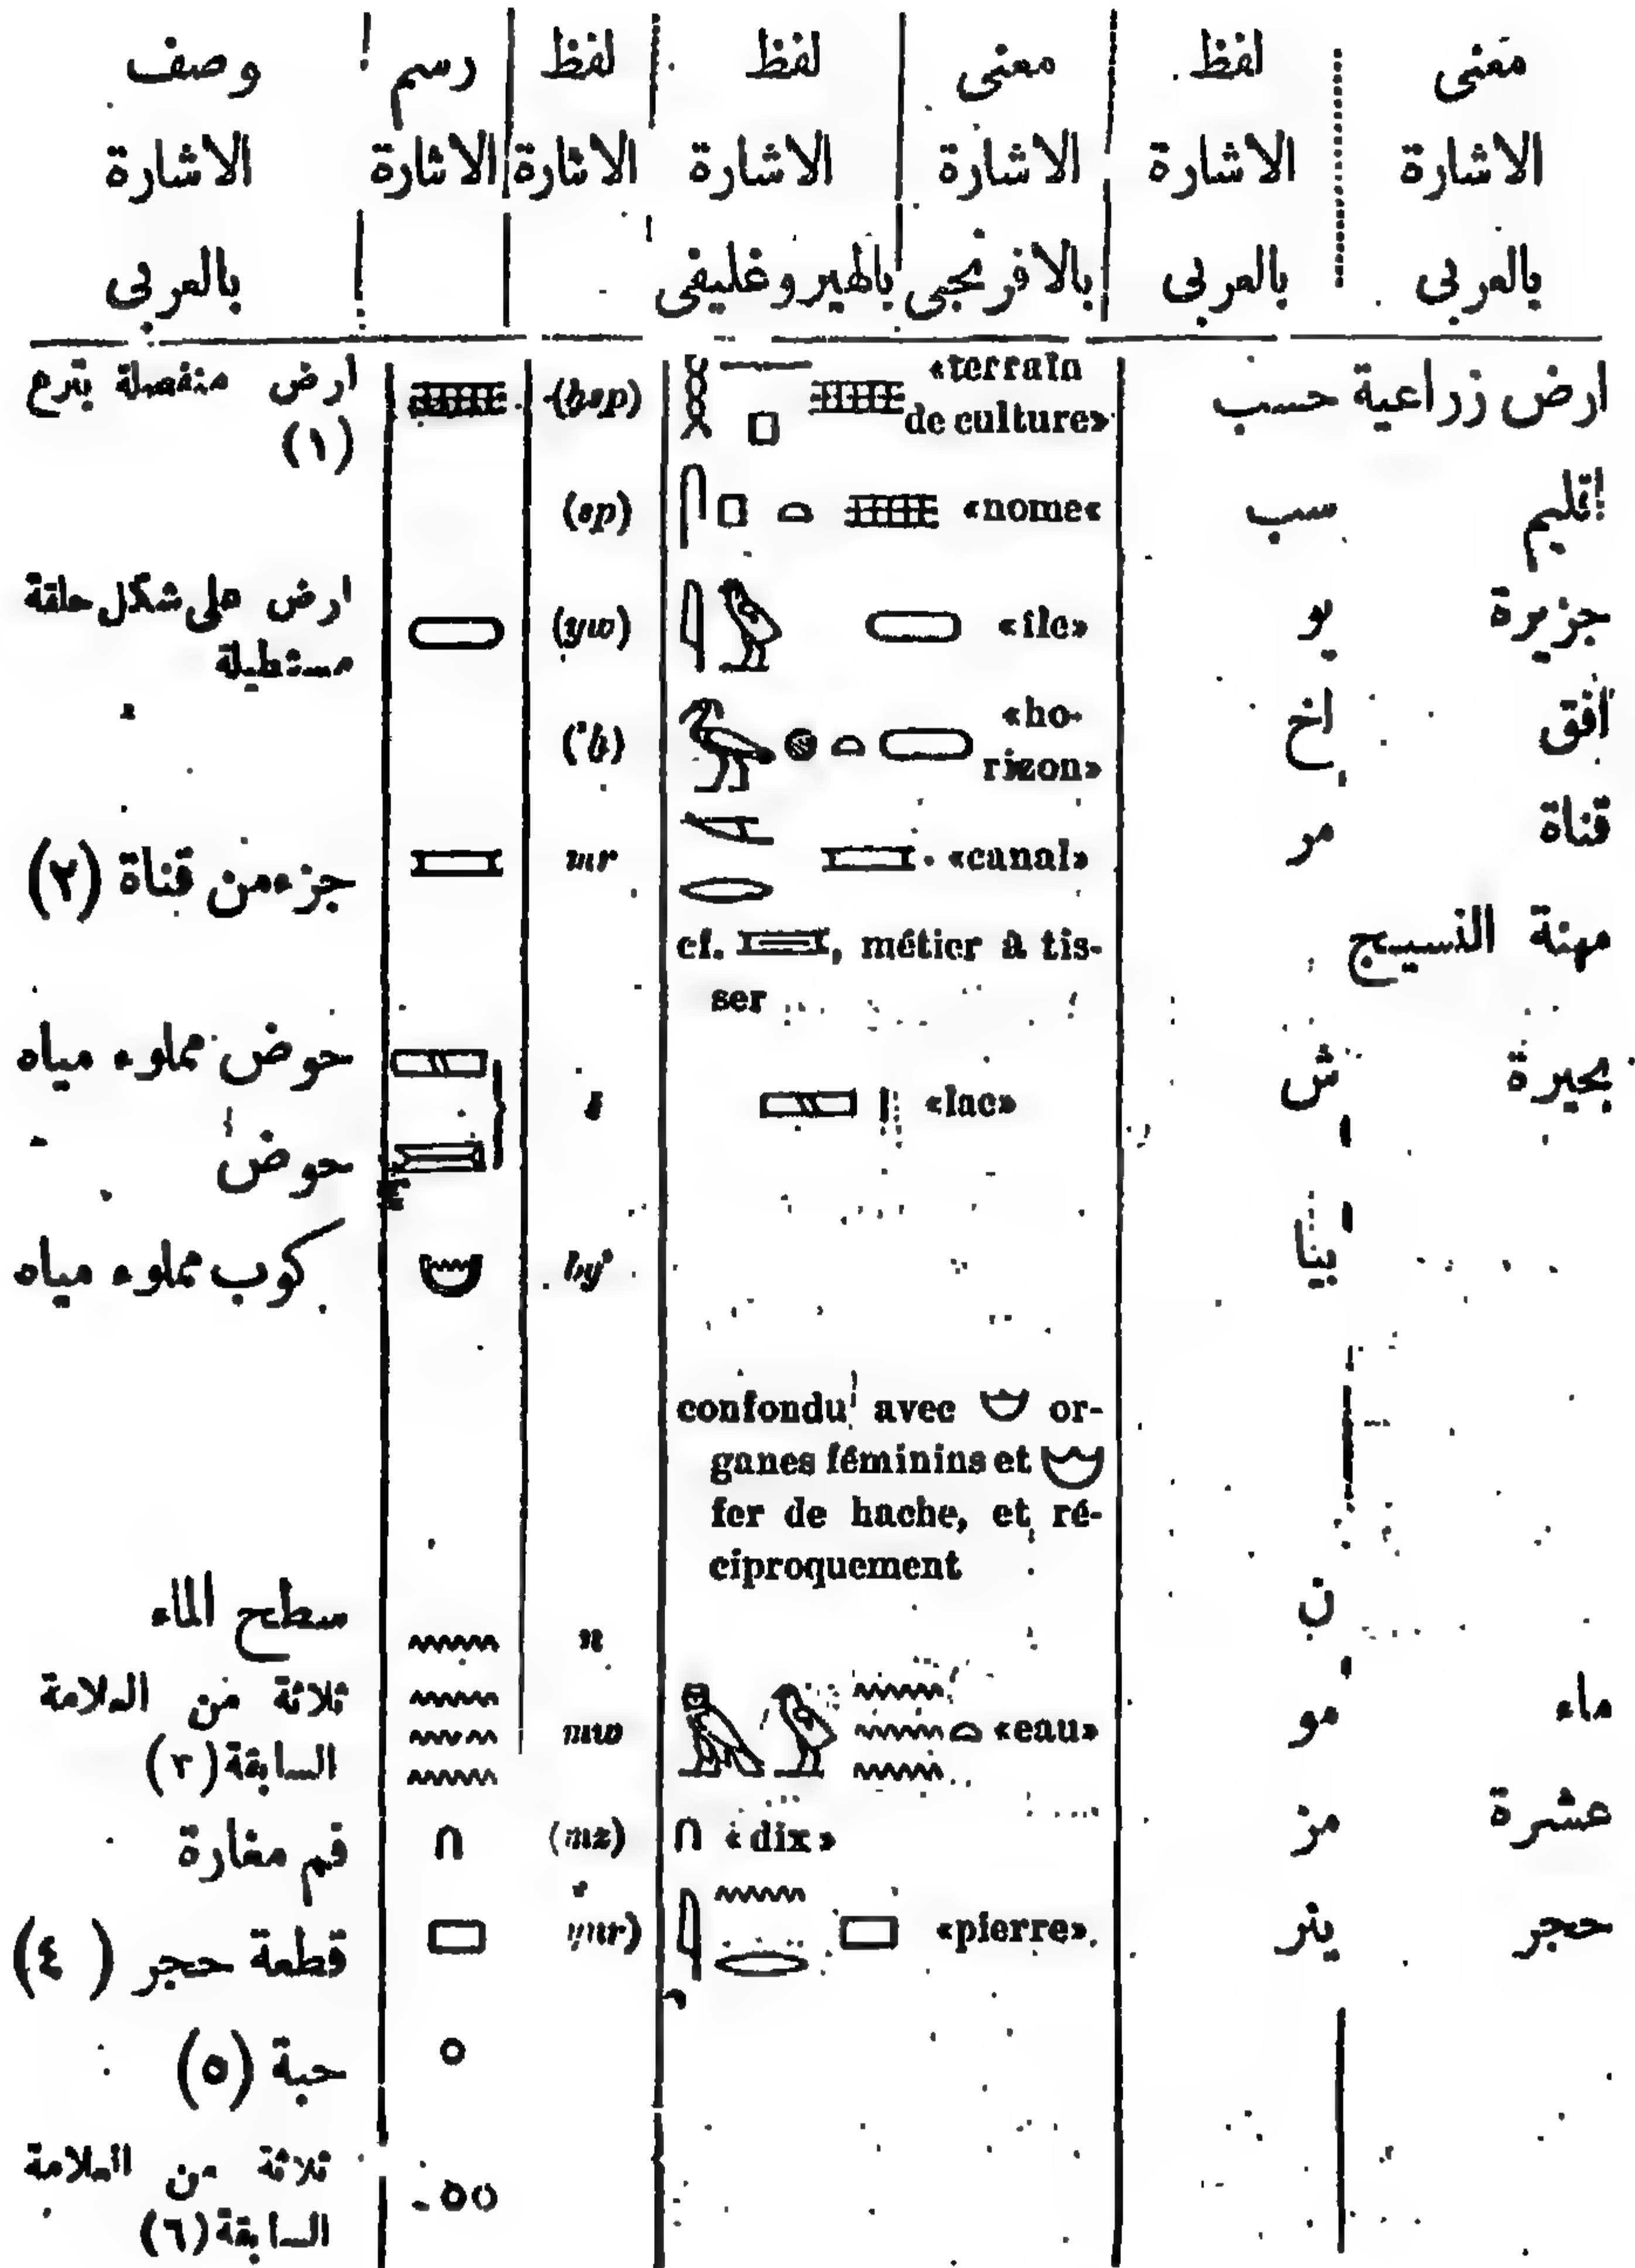 معنى لفظ معنى لفظ لفظ رسم وصف
الاشارة الاشارة الاشارة الاشارة الاشارة الاشارة الاشارة
بالعربى بالعربى بالافرنجى بالهيروغليفى بالعربى
ارض زراعية حسب «terrain de culture» (ḥsp) ارض منفصلة بترع (١)
اقليم سب «nome« (sp)
جزيرة يو «île» (yw) ارض على شكل حلقة مستطيلة
افق اخ «ho-rizon»
قناة مر «canal» mr جزء من قناة (٢)
مهنة النسيج cf. , métier à tis-
ser
بحيرة ش «lac» š حوض مملوء مياه
حوض
بيا by كوب مملوء مياه
confondu avec or-
ganes féminins et
fer de hache, et ré-
ciproquement
ن n سطح الماء
ماء مو «eau» mw ثلاثة من العلامة السابقة (٣)
عشرة مز «dix» (mz) فم مغارة
حجر ينر «pierre» ynr) قطعة حجر (٤)
حبة (٥)
ثلاثة من العلامة السابقة (٦)